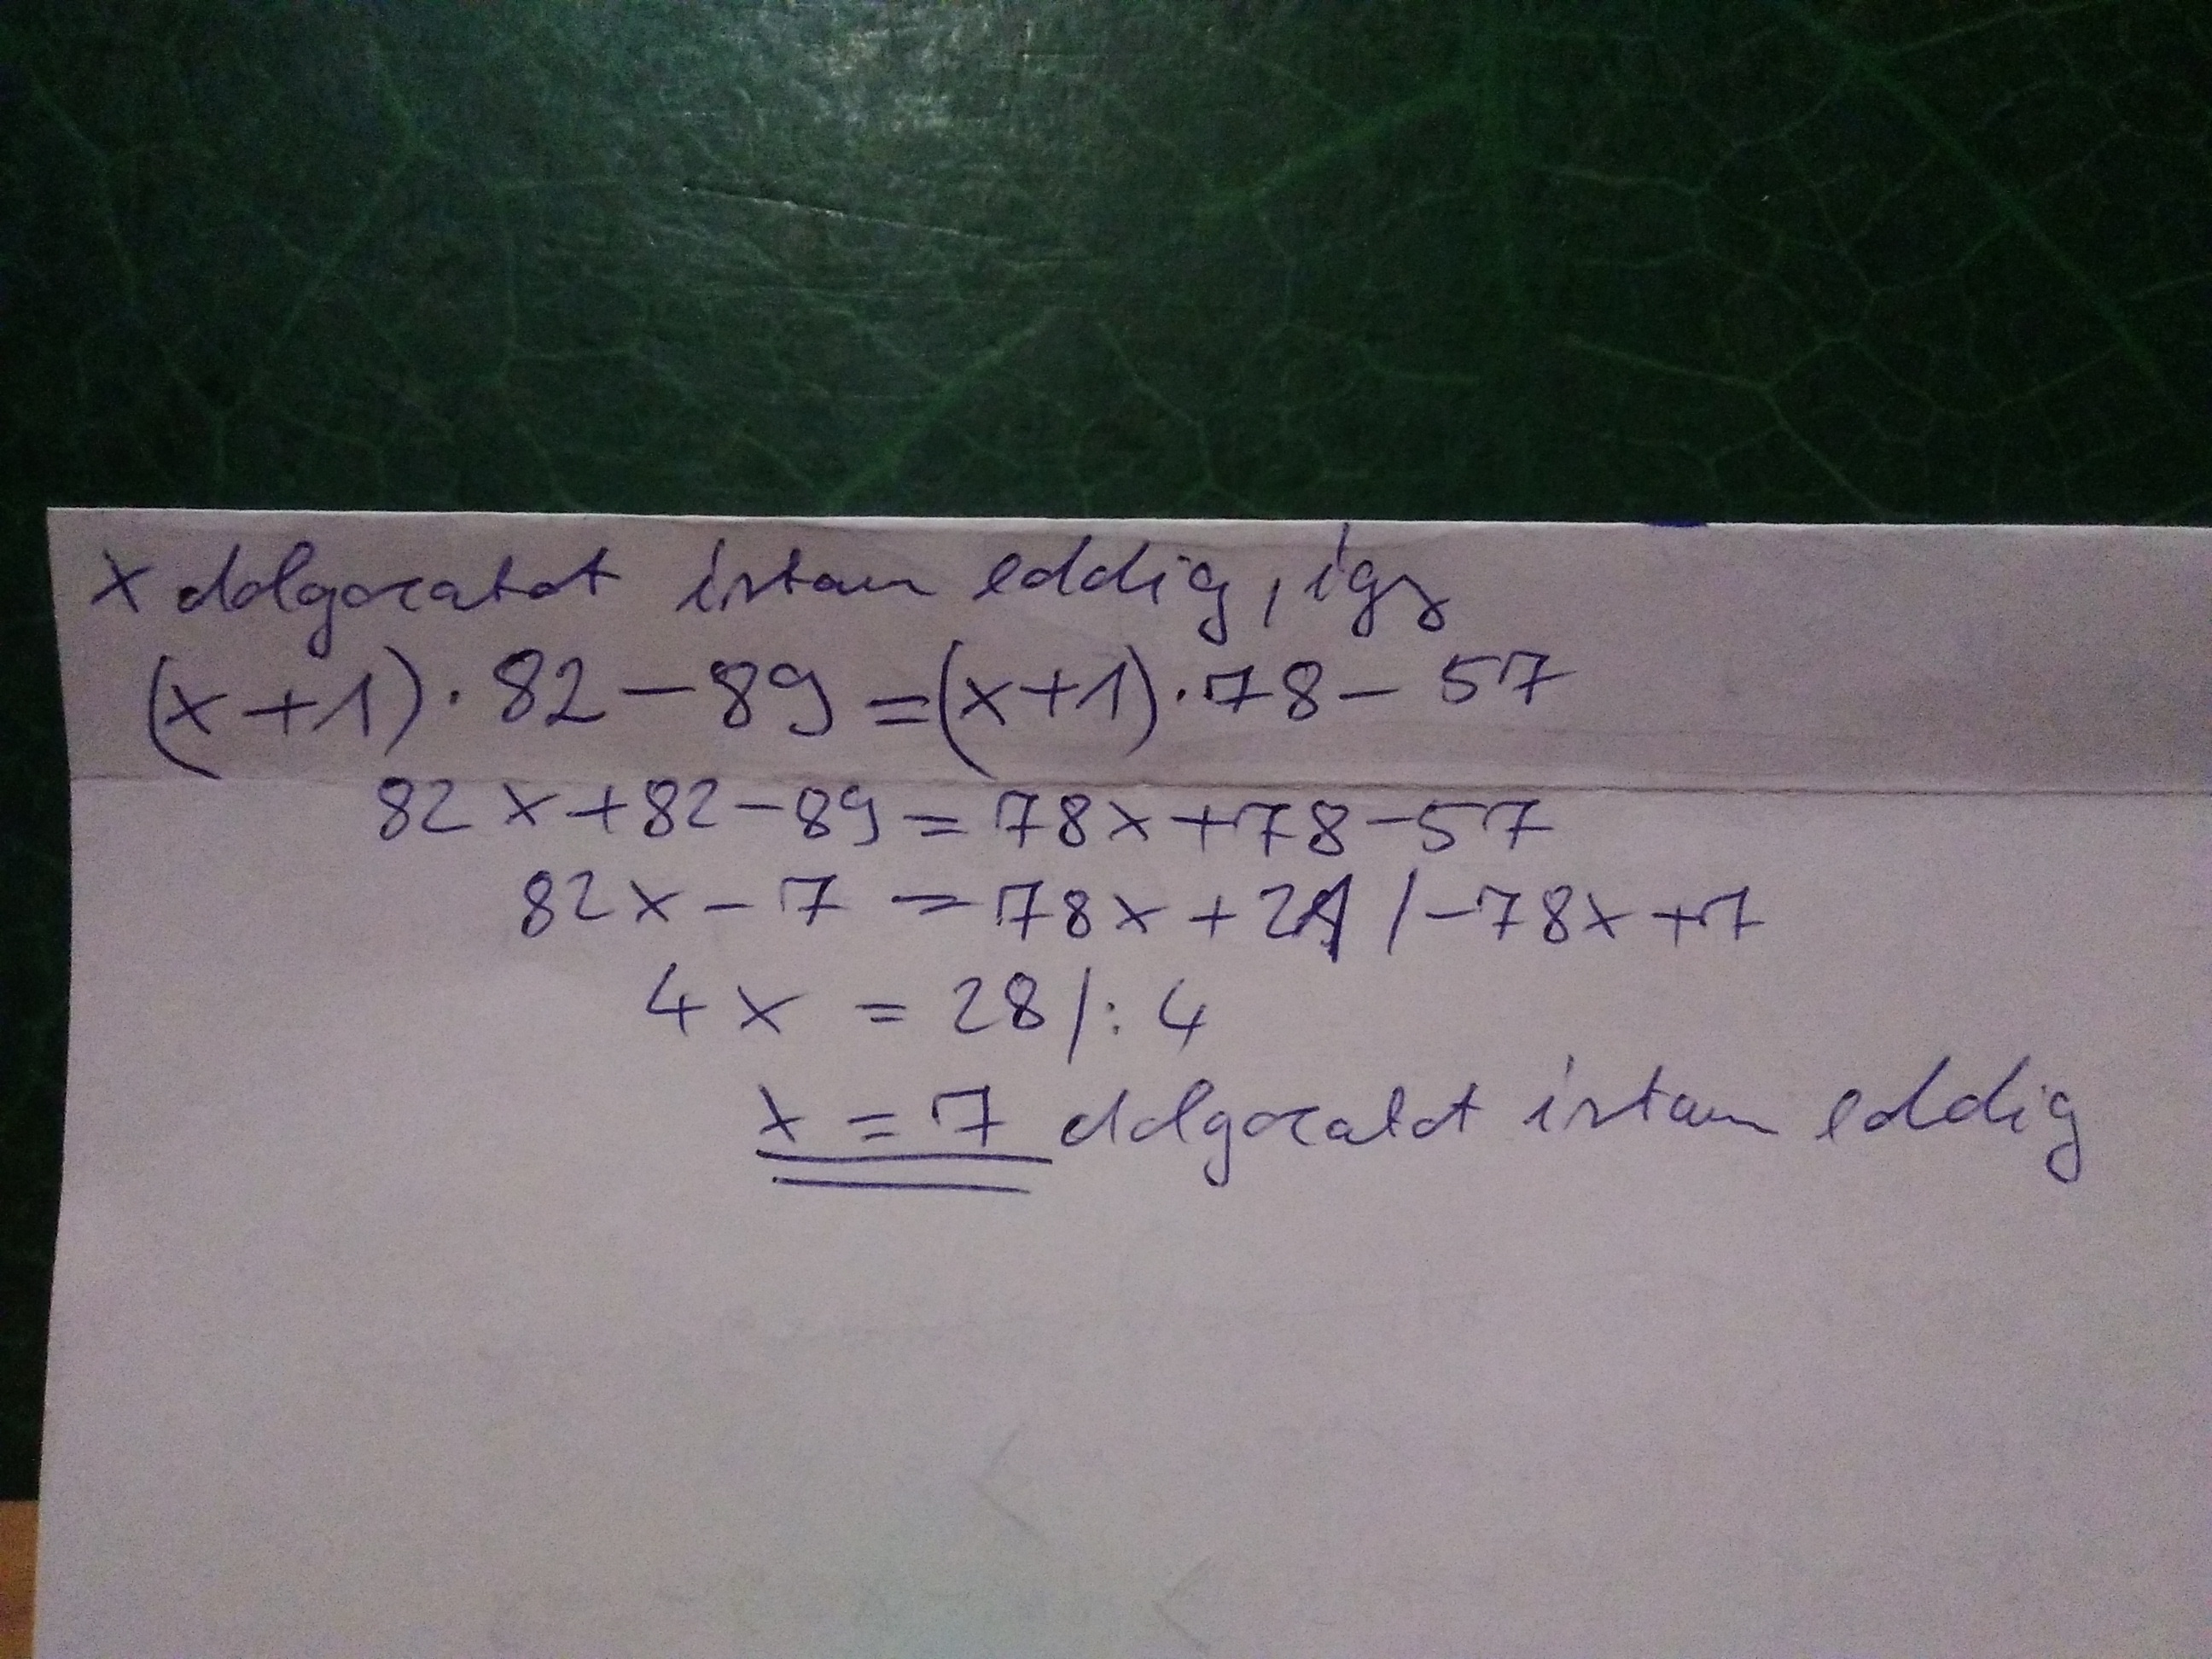 x dolgozatot írtam eddig, így
(x+1)·82-89=(x+1)·78-57
82x+82-89=78x+78-57
82x-7=78x+21 /-78x+7
4x=28/:4
x=7 dolgozatot írtam eddig